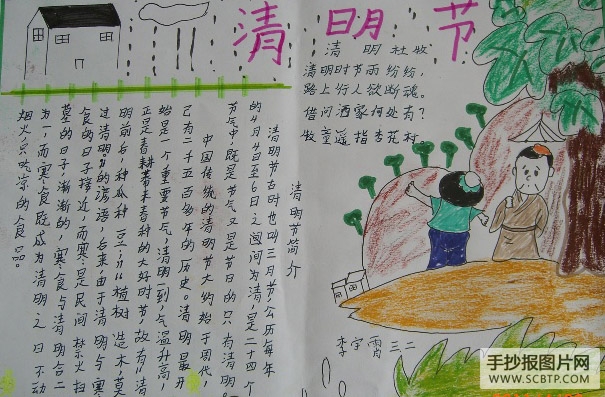 清明节
清明杜牧
清明时节雨纷纷，
路上行人欲断魂。
借问酒家何处有？
牧童遥指杏花村
清明节简介
清明节古时也叫三月节，公历每年
的4月4日至6日之间为清，是二十四个
节气中，既是节气又是节日的只有清明。
中国传统的清明节大约始于周代，
已有二千五百多年的历史。清明最开
始是一个重要节气，清明一到，气温升高，
正是春耕春种的大好时节，故有"清
明前后，种瓜种豆"，"植树造木莫
过清明"的谚语，后来，由于清明与寒
食的日子接近，而寒是民间禁火扫
墓的日子，渐渐的，寒食与清明合二
为一，而寒食既成为清明之日不动
烟火，只吃凉的食品。
李宇霄三二
手抄报图片网
WWW.SCBTP.COM